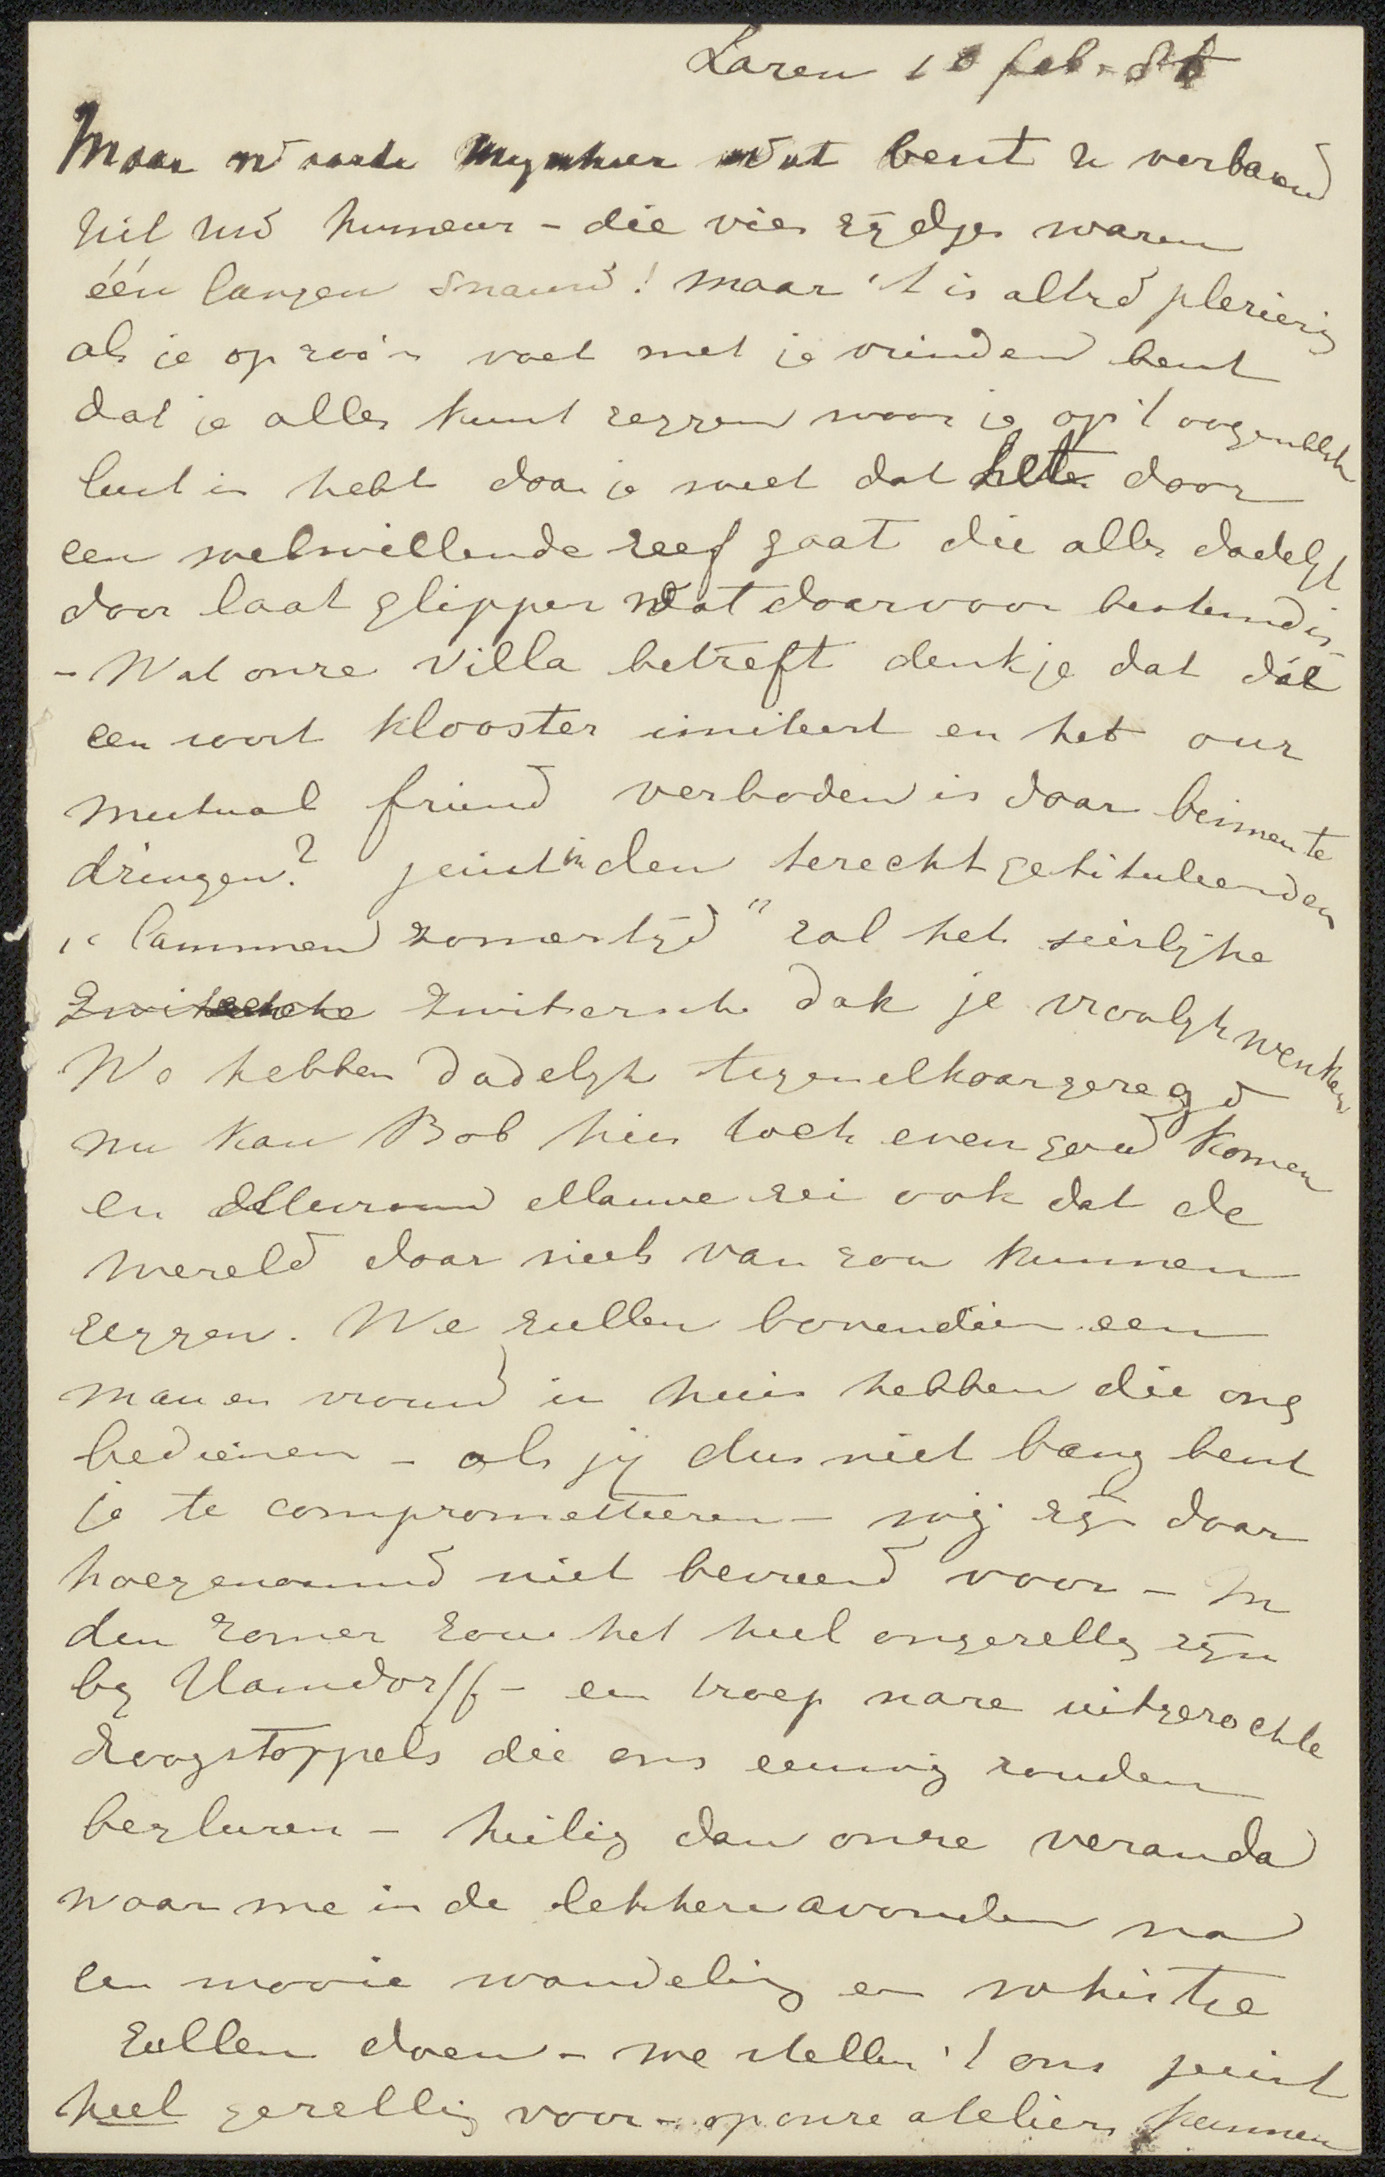 Laren 18 feb. 86
Maar waarde mynheer wat bent u verbaasd
uit uw humeur – die vier zÿdjes waren
één langen snauw! maar 't is altyd plezierig
als je op zoó'n voet met je vrienden bent
dat je alles kunt zeggen waar je op 't oogenblik
lust in hebt daar je weet dat het door
een welwillende zeef gaat die alles dadelÿk
door laat glippen wat daarvoor bestemd is –
– Wat onze Villa betreft denk je dat dát
een soort klooster imiteert en het our
mutual friend verboden is daar binnen te
dringen? juist in den terecht getituleerden
"lammen zomertÿd" zal het sierlÿke
Zwitsersche dak je vroolÿk wenken
We hebben dadelÿk tegen elkaar gezegd
nu kan Bob hier toch even goed komen
en Mauve zei ook dat de
wereld daar niets van zou kunnen
zeggen. We zullen bovendien een
man en vrouw in huis hebben die ons
bedienen – als jÿ dus niet bang bent
je te compromettieren – wÿ zÿn daar
hoegenaamd niet bevreesd voor – In
den zomer zou het heel ongezellig zÿn
by Hamdorff – een troep nare uitgezochte
droogstoppels die ons eeuwig zouden
begluren – heilig dan onze veranda
waar we in de lekkere avonden na
een mooie wandeling en whistje
zullen doen – we stellen 't ons juist
heel gezellig voor – op onze ateliers kunnen